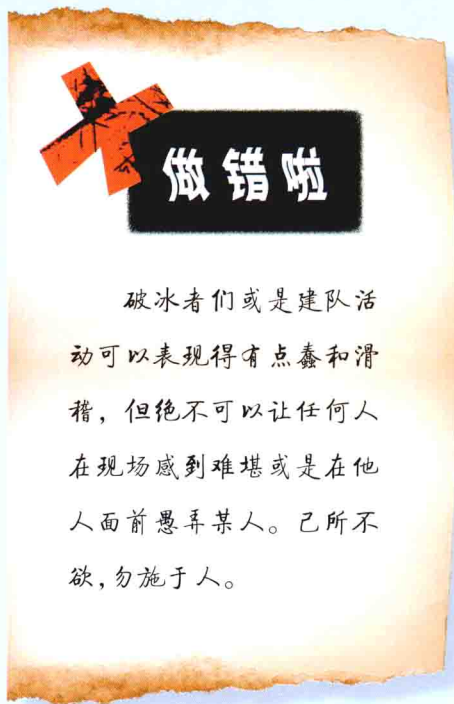 做错啦
破冰者们或是建队活
动可以表现得有点蠢和滑
稽，但绝不可以让任何人
在现场感到难堪或是在他
人面前愚弄某人。己所不
欲，勿施于人。